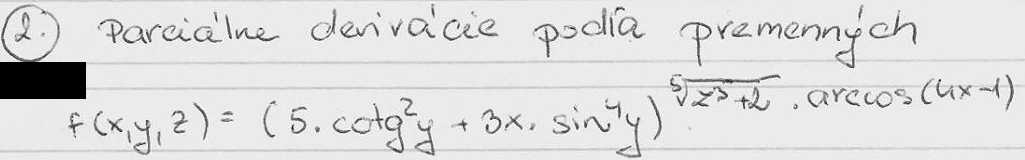 2. Parciálne derivácie podľa premenných
f(x,y,z) = (5.cotg²y + 3x. sin⁴y)^⁵√(z³+2) . arccos(4x-1)